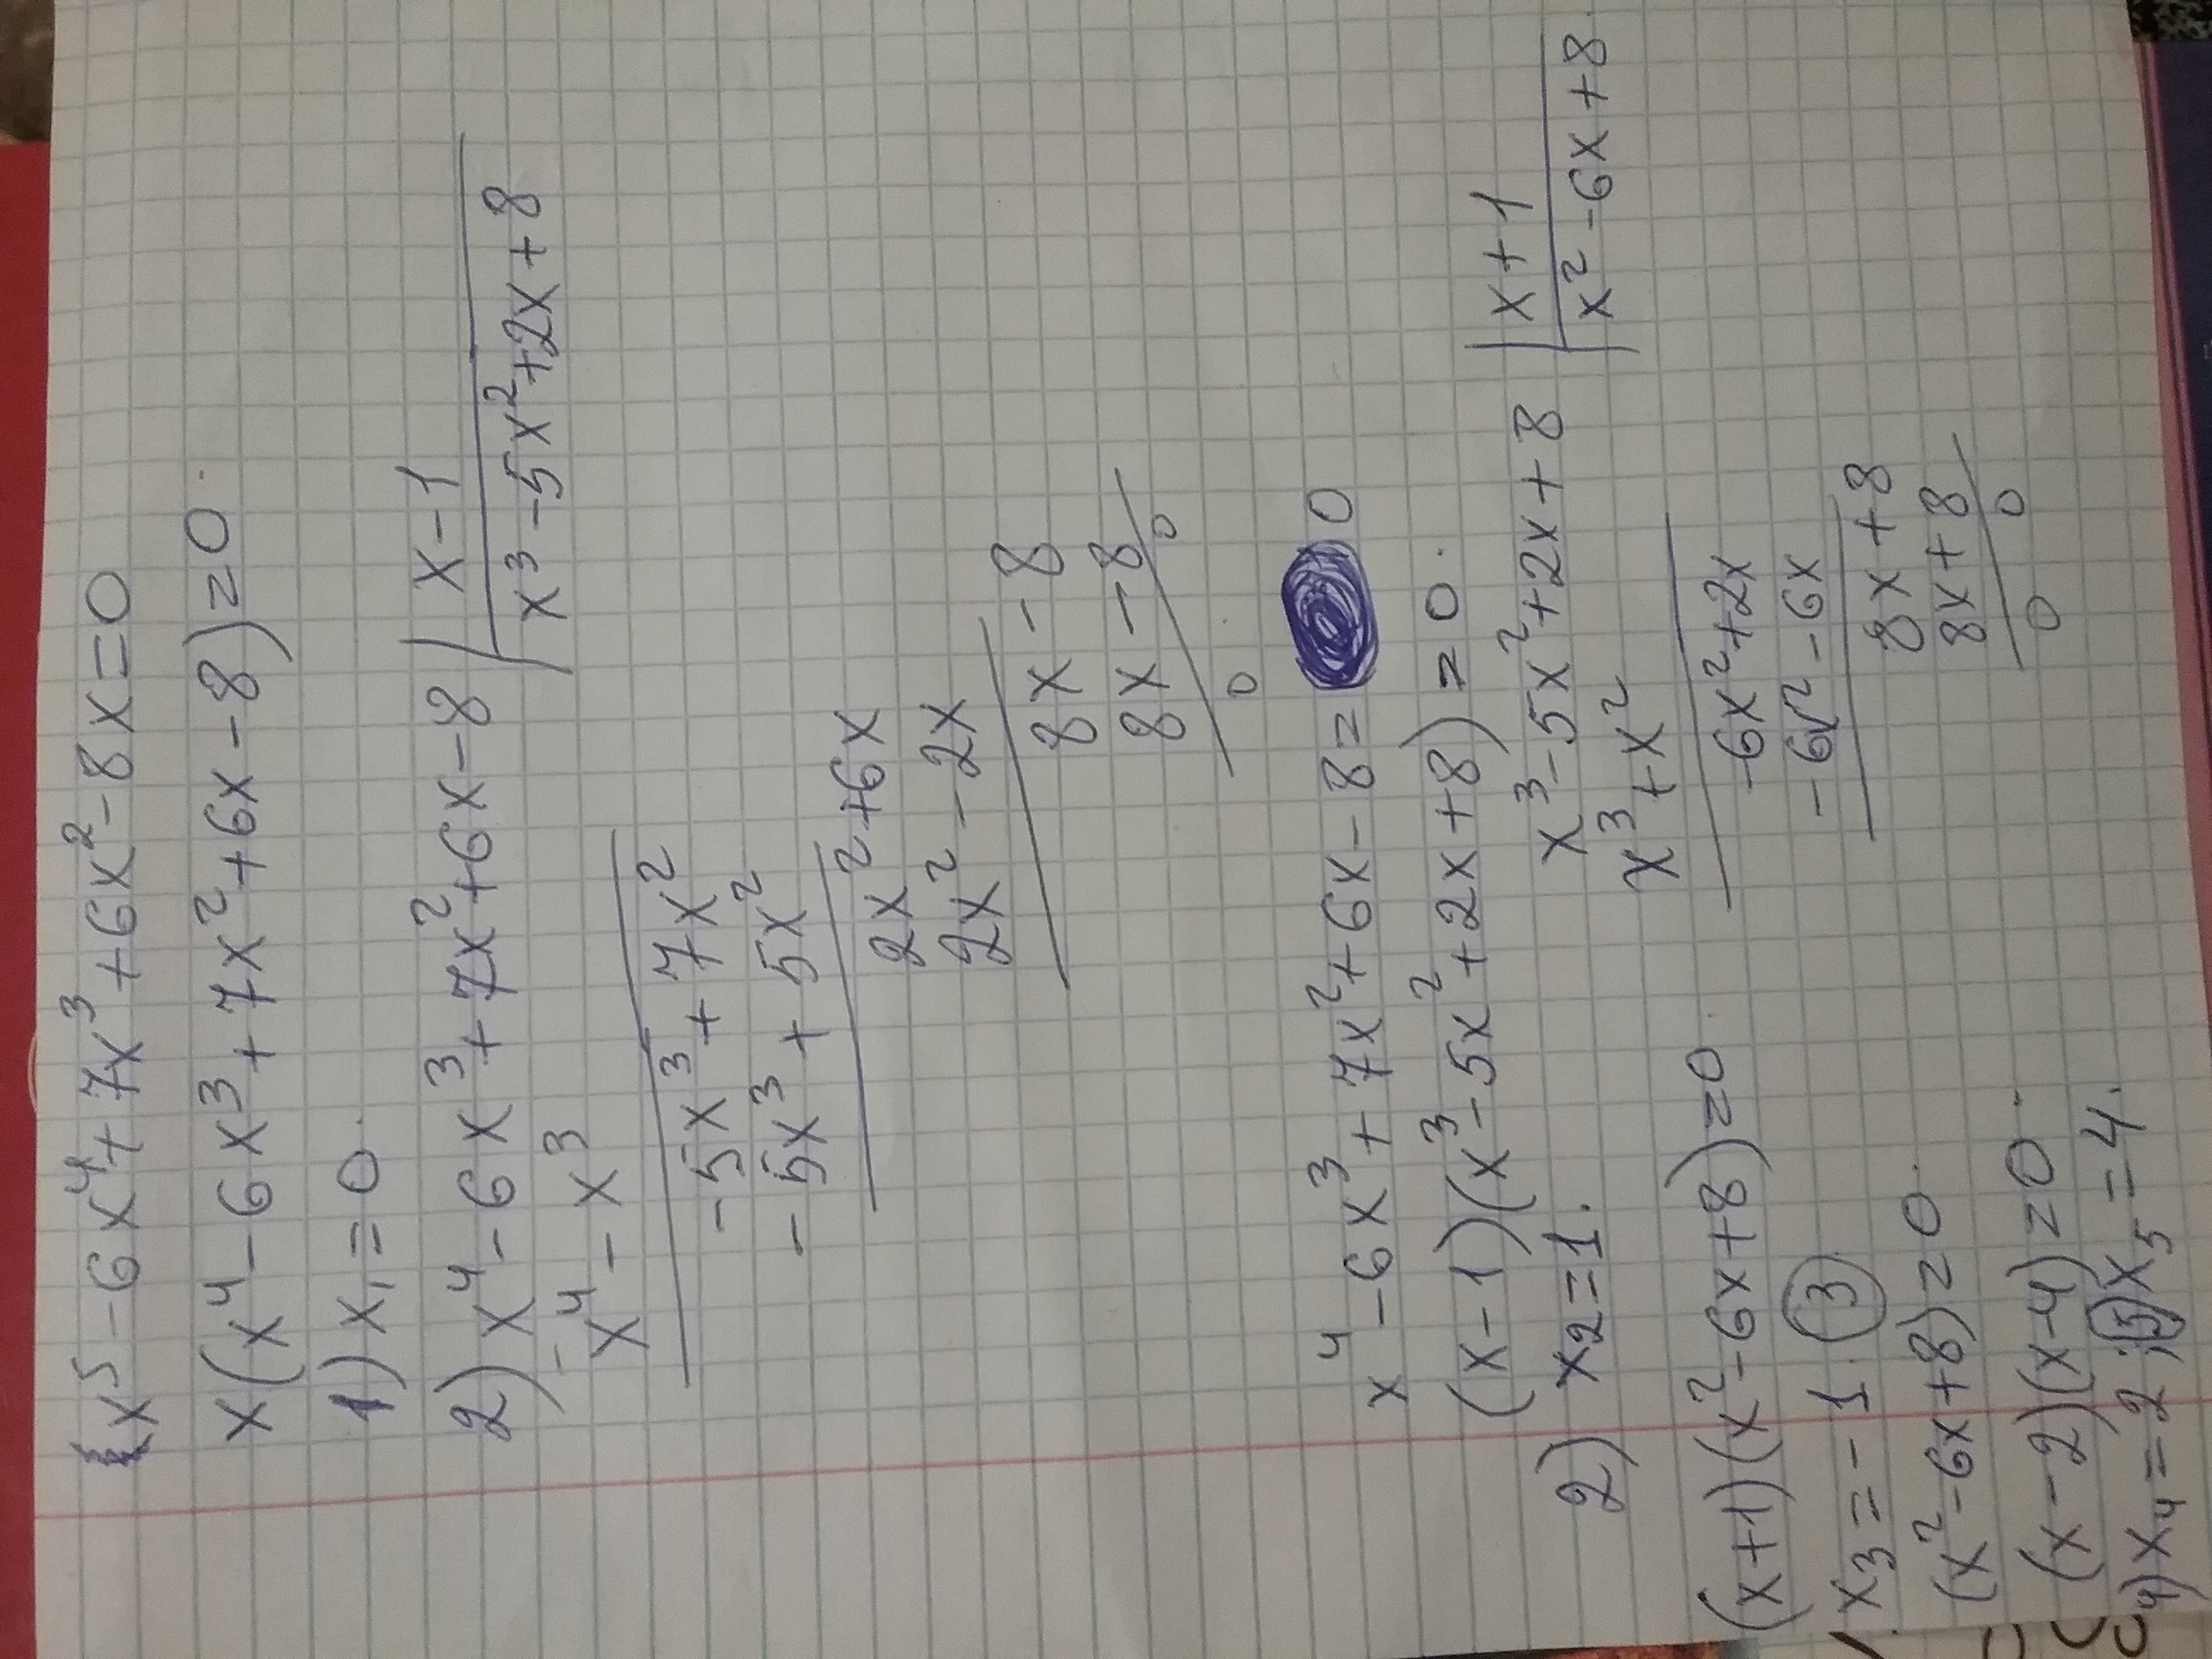 x⁵-6x⁴+7x³+6x²-8x=0
x(x⁴-6x³+7x²+6x-8)=0.
1) x₁=0.
2) x⁴-6x³+7x²+6x-8 | x-1
x⁴-x³
x³-5x²+2x+8
-5x³+7x²
-5x³+5x²
2x²+6x
2x²-2x
8x-8
8x-8
0 0
x⁴-6x³+7x²+6x-8= 0
(x-1)(x³-5x²+2x+8)=0.
2) x₂=1.
x³-5x²+2x+8 | x+1
x³+x²
x²-6x+8.
-6x²+2x
-6x²-6x
8x+8
8x+8
0 0
(x+1)(x²-6x+8)=0.
x₃=-1. 3
(x²-6x+8)=0.
(x-2)(x-4)=0.
4) x₄=2; 5) x₅=4.